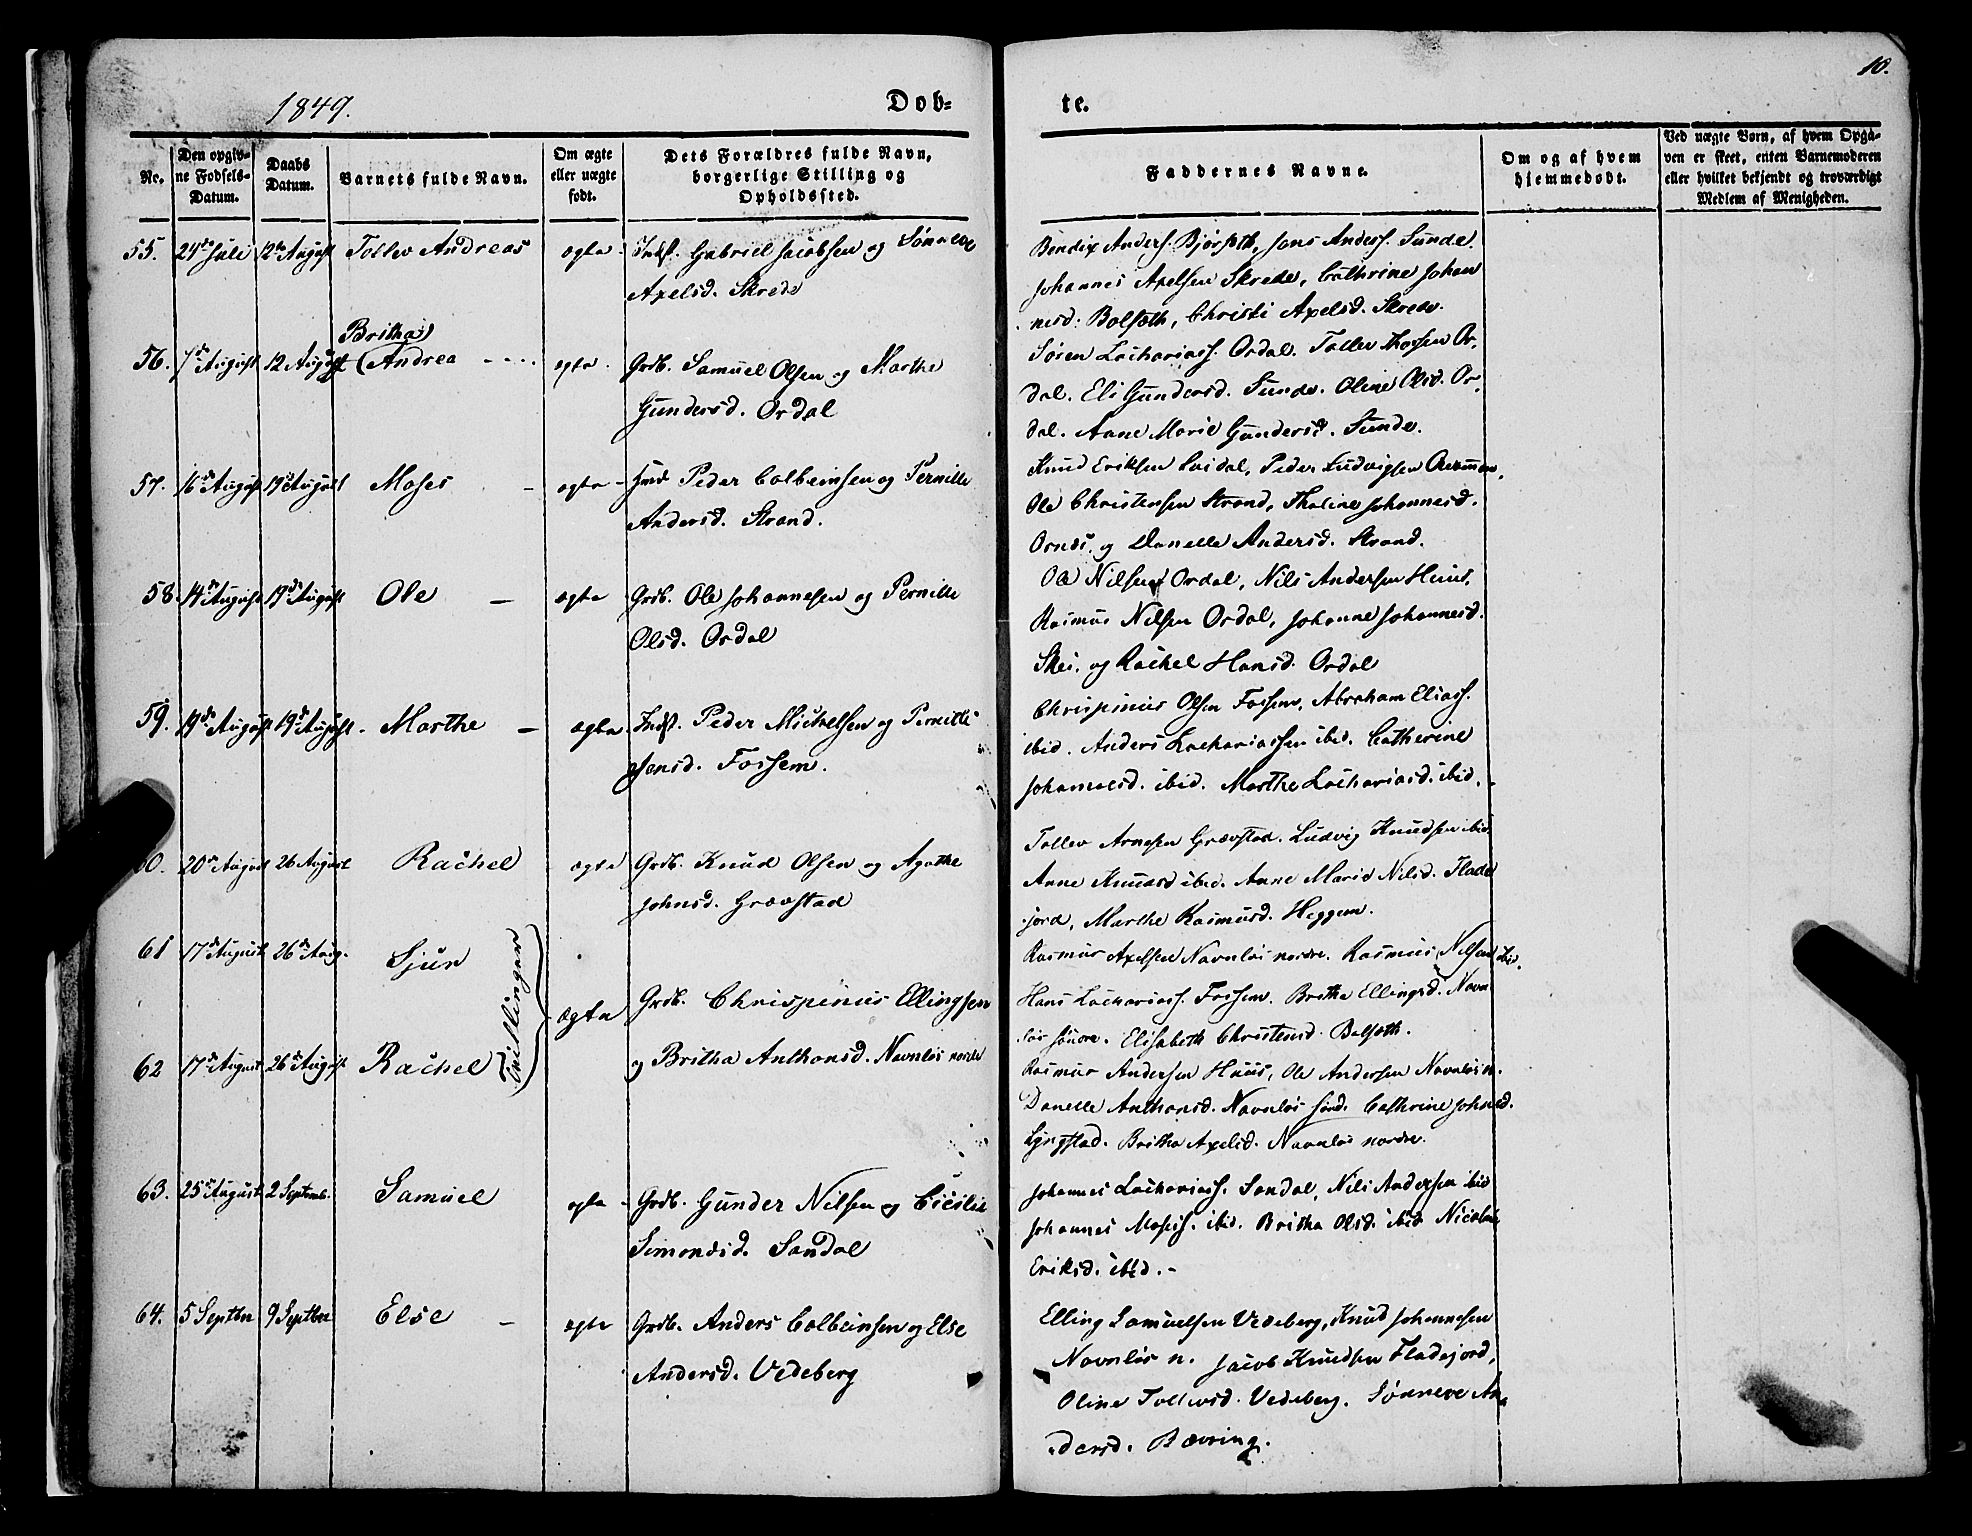 1849.
Dob=
te.
10.
Nr.
Den opgiv-
ne Fødsels-
Datum.
Daabs
Datum.
Barnets fulde Navn.
Om ægte
eller uægte
født.
Dets Forældres fulde Navn,
borgerlige Stilling og
Opholdssted.
Faddernes Navne.
Om og af hvem
hjemmedøbt.
Ved uægte Børn, af hvem Opga-
ven er skeet, enten Barnemoderen
eller hvilket bekjendt og troværdigt
Medlem af Menigheden.
55. 24de Juli 12te August Tollev Andreas ægte Indst. Gabriel Jacobsen og Sønneve
Axelsd. Skrede
Bendix Anders. Bjørsæth, Jens Anders. Sunde.
Johannes Axelsen Skrede, Cathrine Johan
nesd. Bolsæth, Christi Axelsd. Skrede.
Britha
56. 7de August 12 August (Andrea ægte. Grdb. Samuel Olsen og Marthe
Gundersd. Ordal
Søren Zachariass. Ordal. Tollev Thossen Or-
dal. Eli Gundersd. Sunde. Oline Olsd. Or-
dal. Anne Marie Gundersd. Sunde.
57. 16de August 19de August Moses - ægte - Peder Colbeinsen og Pernille
Andersd. Strand.
Knud Eriksen Peder Ludvigsen
Ole Christensen Strand, Thaline Johannesd.
Ornes. og Danelle Andersd. Strand.
58. 14de August 19de August Ole - ægte Grdb. Ole Johannesen og Pernille
Olsd. Ordal
Ole Nilsen Ordal, Nils Andersen Huus,
Rasmus Nilsen Ordal, Johanne Johannesd.
Skei. og Rachel Hansd. Ordal
59. 19de August 19de August. Marthe - ægte Indst. Peder Mickelsen og Pernille
Jensd. Fossem.
Chrispinus Olsen Fossem, Abraham Eliass.
ibid. Anders Zachariassen ibid. Catherine
Johannesd. ibid. Marthe Zachariasd. ibid. -
60. 20de August 26 August Rachel ægte Grdb. Knud Olsen og Agathe
Johnsd. Grævstad
Tollev Arnesen Grævstad. Ludvig Knudsen ibid.
Anne Knudsd ibid. Anne Marie Nilsd. Flade
jord, Marthe Rasmusd. Heggem.
61 17de August 26de Aug. Sjur
Tvillinger
ægte Grdb. Chrispinus Ellingsen
og Britha Anthonsd. Navnløs nordre
Rasmus Axelsen Navnløs nordre. Rasmus Nilsen ibid.
Hans Zachariass. Fossem. Brithe Ellingsd. Navn
løs søndre. Elisabeth Christensd. Bolsæth.
62 17de August 26de August Rachel
Rasmus Andersen Huus, Ole Andersen Navnløs n.
Danelle Anthonsd. Navnløs sønd. Cathrine Johnsd.
Lyngstad. Britha Axelsd. Navnløs nordre.
63. 25de August 2 Septemb. Samuel ægte - Grdb. Gunder Nilsen og Cicilie
Simonsd. Sandal
Johannes Zachariass. Sandal, Nils Andersen ibid
Johannes Mosess. ibid. Britha Olsd. ibid Nicoline
Eriksd. ibid. -
64. 5 Septbr 9 Septbr Else - ægte Grdb. Anders Colbeinsen og Else
Andersd. Vedeberg
Elling Samuelsen Vedeberg, Knud Johannesen
Navnløs n. Jacob Knudsen Fladejord,
Oline Tollevsd. Vedeberg. Sønneve An
dersd. Bævring.